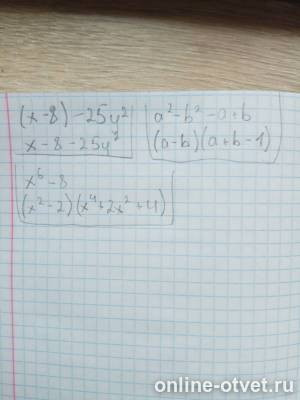 (x-8)-25y²
x-8-25y²
a²-b²-a+b
(a-b)(a+b-1)
x⁶-8
(x²-2)(x⁴+2x²+4)
online-otvet.ru